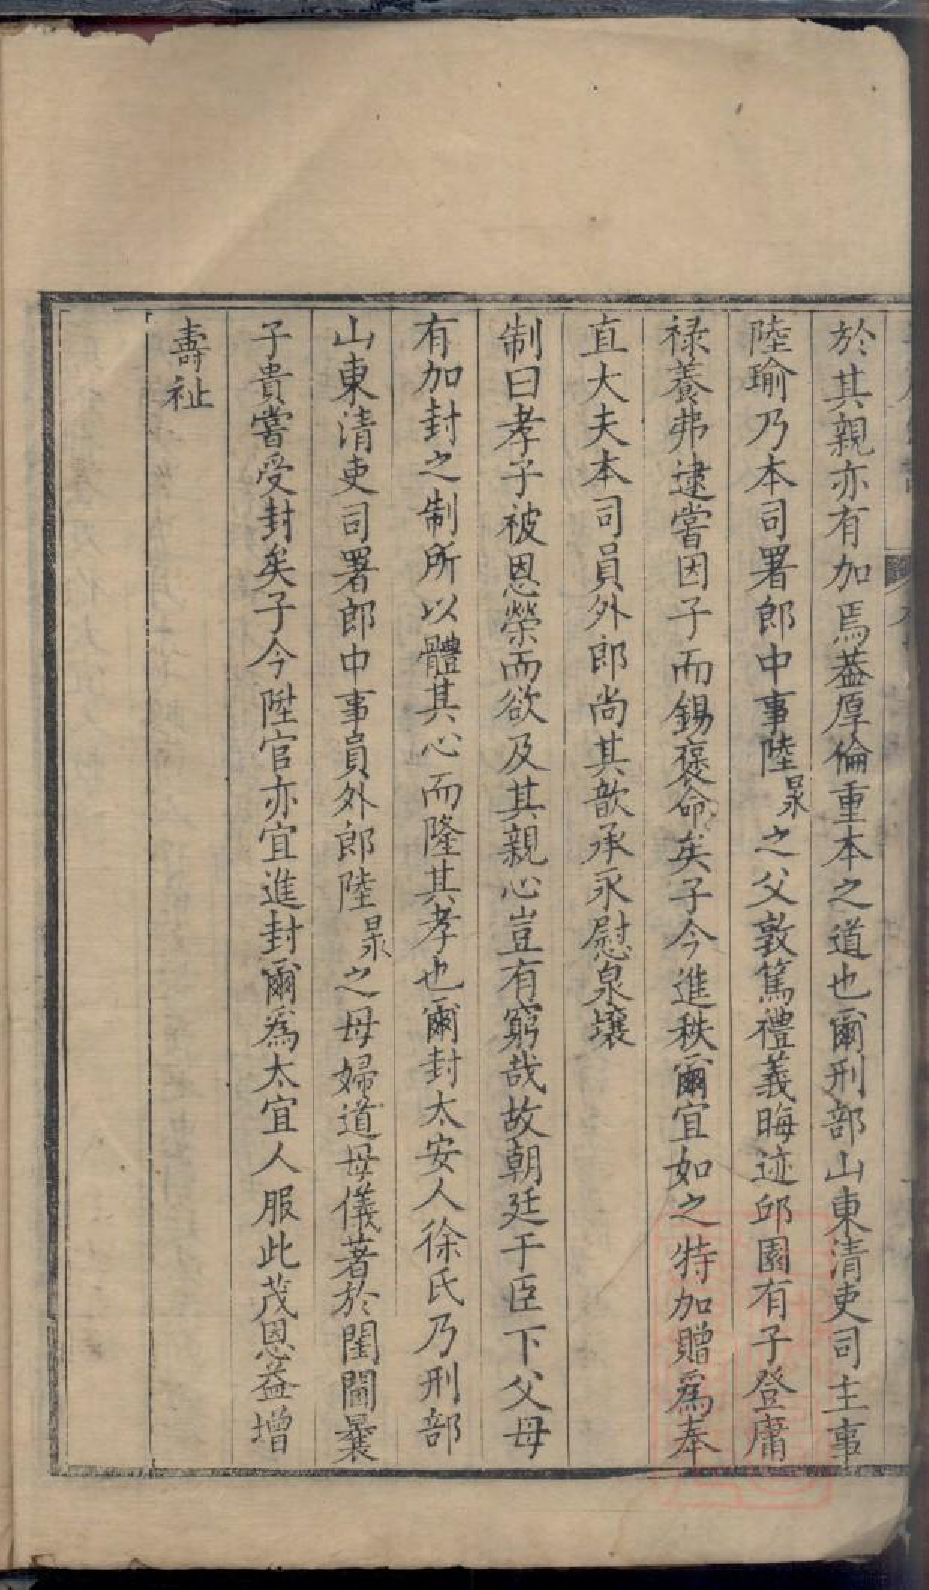 於其親亦有加焉蓋厚倫重本之道也爾刑部山東清吏司主事
陸瑜乃本司署郎中事陸㫤之父敦篤禮義晦迹邱園有子登庸
祿養弗逮嘗因子而錫褒命矣子今進秩爾宜如之特加贈爲奉
直大夫本司員外郎尚其歆承永慰泉壤
制曰孝子被恩榮而欲及其親心豈有窮哉故朝廷于臣下父母
有加封之制所以體其心而隆其孝也爾封太安人徐氏乃刑部
山東清吏司署郎中事員外郎陸㫤之母婦道母儀著於閨閫曩
子貴嘗受封矣子今陞官亦宜進封爾爲太宜人服此茂恩益增
壽祉